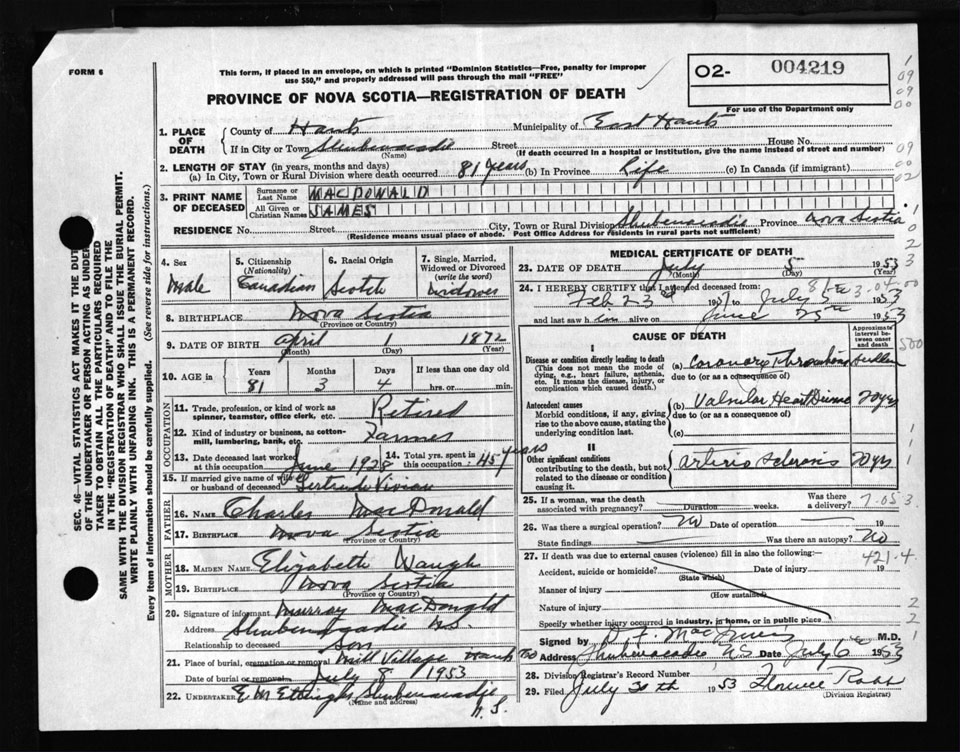 FORM 6
This form, if placed in an envelope, on which is printed "Dominion Statistics—Free, penalty for improper
use $50," and properly addressed will pass through the mail "FREE"
O2- 004219
For use of the Department only
PROVINCE OF NOVA SCOTIA—REGISTRATION OF DEATH
1. PLACE OF DEATH
County of Hants Municipality of East Hants
If in City or Town Shubenacadie Street House No.
(Name) (If death occurred in a hospital or institution, give the name instead of street and number)
2. LENGTH OF STAY (in years, months and days)
(a) In City, Town or Rural Division where death occurred 81 years (b) In Province Life (c) In Canada (if immigrant)
3. PRINT NAME OF DECEASED
Surname or Last Name MACDONALD
All Given or Christian Names JAMES
RESIDENCE No. Street City, Town or Rural Division Shubenacadie Province Nova Scotia
(Residence means usual place of abode. Post Office Address for residents in rural parts not sufficient)
4. Sex
Male
5. Citizenship
(Nationality)
Canadian
6. Racial Origin
Scotch
7. Single, Married, Widowed or Divorced
(write the word)
Widower
8. BIRTHPLACE Nova Scotia
(Province or Country)
9. DATE OF BIRTH April 1 1872
(Month) (Day) (Year)
10. AGE in Years Months Days If less than one day
81 3 4 hrs. or min.
OCCUPATION
11. Trade, profession, or kind of work as
spinner, teamster, office clerk, etc. Retired
12. Kind of industry or business, as cotton-
mill, lumbering, bank, etc. Farmer
13. Date deceased last worked
at this occupation June 1928
14. Total yrs. spent in
this occupation 45 years
15. If married give name of wife
or husband of deceased Gertrude Vivian
FATHER
16. NAME Charles MacDonald
17. BIRTHPLACE Nova Scotia
(Province or Country)
MOTHER
18. MAIDEN NAME Elizabeth Waugh
19. BIRTHPLACE Nova Scotia
(Province or Country)
20. Signature of informant Murray MacDonald
Address Shubenacadie N.S.
Relationship to deceased son
21. Place of burial, cremation or removal Mill Village Hants
Date of burial or removal July 8 1953
22. UNDERTAKER E M Ettinger Shubenacadie
(Name and address) N.S.
MEDICAL CERTIFICATE OF DEATH
23. DATE OF DEATH July 5 1953
(Month) (Day) (Year)
24. I HEREBY CERTIFY that I attended deceased from:
Feb 23rd to July 5th 1953
and last saw him alive on June 25th 1953
CAUSE OF DEATH
Approximate interval between onset and death
I
Disease or condition directly leading to death
(This does not mean the mode of dying, e.g., heart failure, asthenia, etc. It means the disease, injury, or complication which caused death.)
(a) Coronary Thrombosis Sudden
due to (or as a consequence of)
Antecedent causes
Morbid conditions, if any, giving rise to the above cause, stating the underlying condition last.
(b) Valvular Heart Disease 20 yrs
due to (or as a consequence of)
(c)
II
Other significant conditions
contributing to the death, but not related to the disease or condition causing it.
Arterio Sclerosis 20 yrs
25. If a woman, was the death
associated with pregnancy? Duration weeks. Was there a delivery?
26. Was there a surgical operation? No Date of operation 19
State findings Was there an autopsy? No
27. If death was due to external causes (violence) fill in also the following:—
Accident, suicide or homicide? Date of injury 19
(State which)
Manner of injury
(How sustained)
Nature of injury
Specify whether injury occurred in industry, in home, or in public place
Signed by M.D.
Address Shubenacadie NS Date July 6 1953
28. Division Registrar's Record Number
29. Filed July 30th 1953 Florence
(Division Registrar)
421.4
7.053
SEC. 46—VITAL STATISTICS ACT MAKES IT THE DUTY
OF THE UNDERTAKER OR PERSON ACTING AS UNDER-
TAKER TO OBTAIN ALL THE PARTICULARS REQUIRED
IN THE "REGISTRATION OF DEATH" AND TO FILE THE
SAME WITH THE DIVISION REGISTRAR WHO SHALL ISSUE THE BURIAL PERMIT.
WRITE PLAINLY WITH UNFADING INK. THIS IS A PERMANENT RECORD.
Every item of information should be carefully supplied. (See reverse side for instructions.)